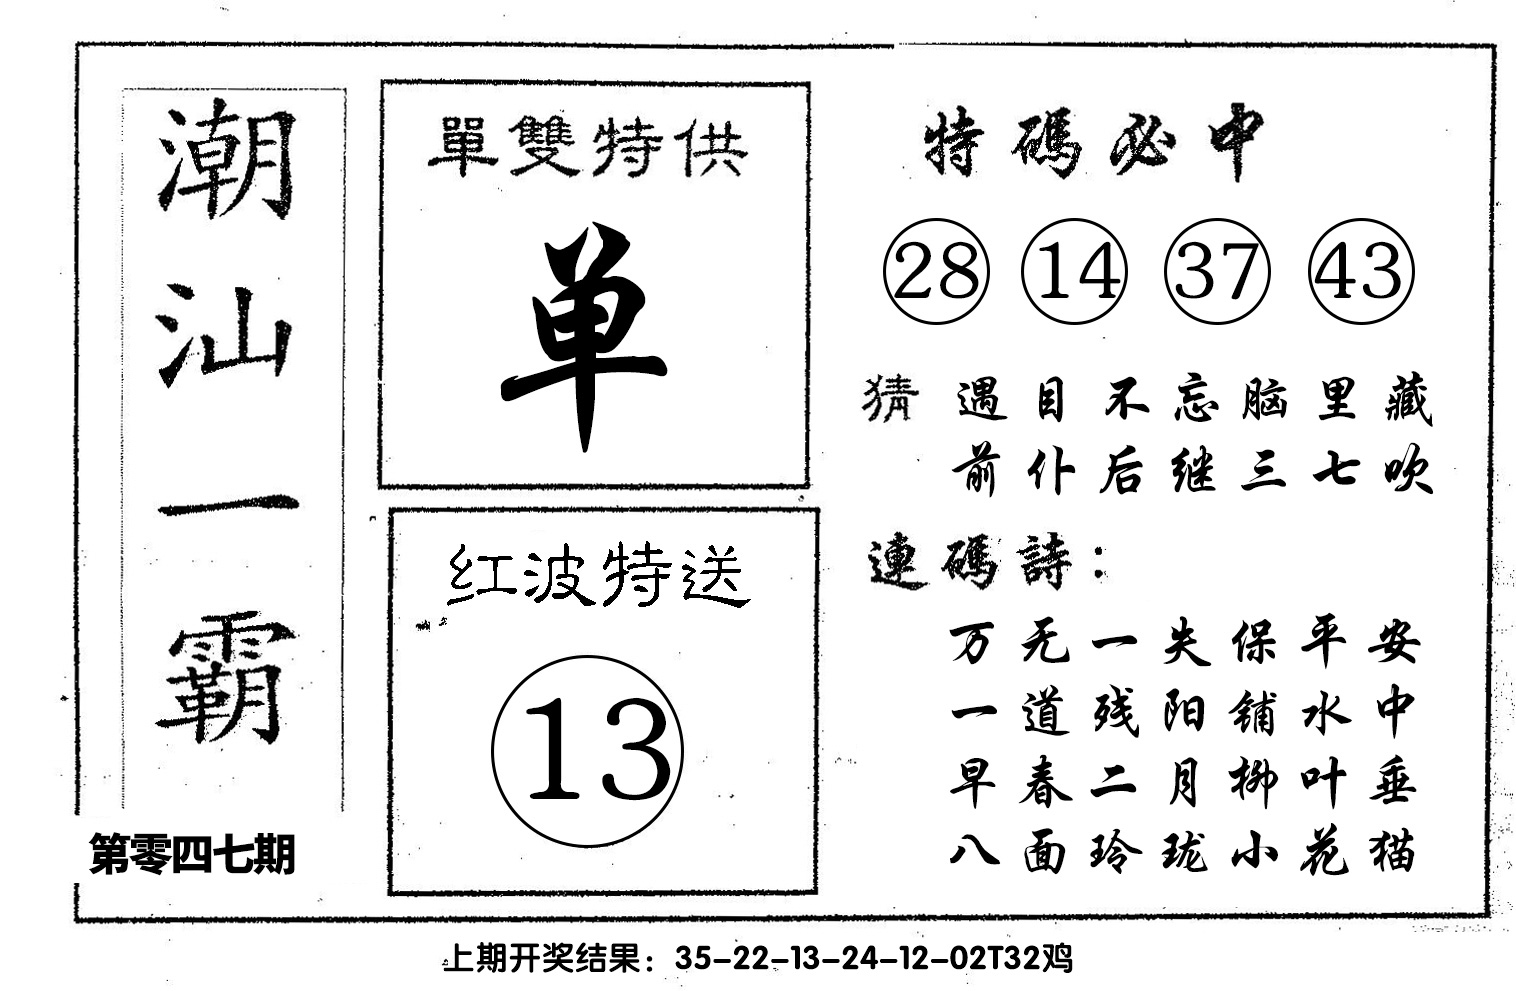 潮汕一霸
第零四七期
單雙特供
单
红波特送
13
特碼必中
28 14 37 43
猜 遇目不忘脑里藏
前仆后继三七吹
連碼詩：
万无一失保平安
一道残阳铺水中
早春二月柳叶垂
八面玲珑小花猫
上期开奖结果：35-22-13-24-12-02T32鸡